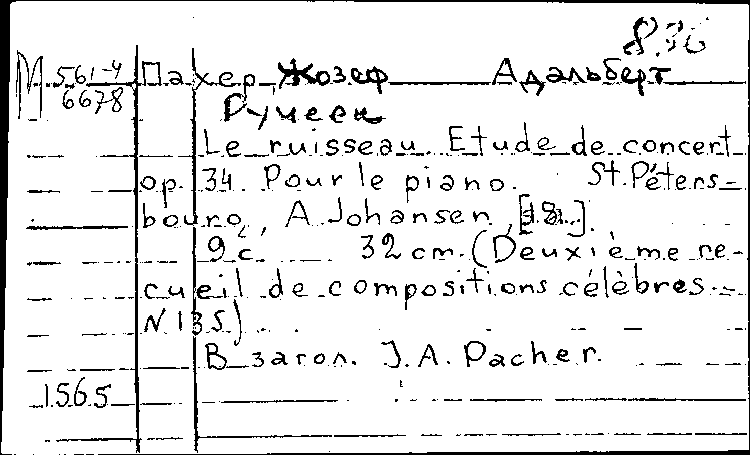 8.36
М 561-4 Пахер, Жозеф Адальберт
6678
Ручеек
Le ruisseau. Etude de concert
op. 34. Pour le piano. St. Péters-
bourg, A. Johansen, [18..].
9 с. 32 cm. (Deuxième re-
cueil de compositions célèbres.-
N. 135.)
В загол. J. A. Pacher.
1565